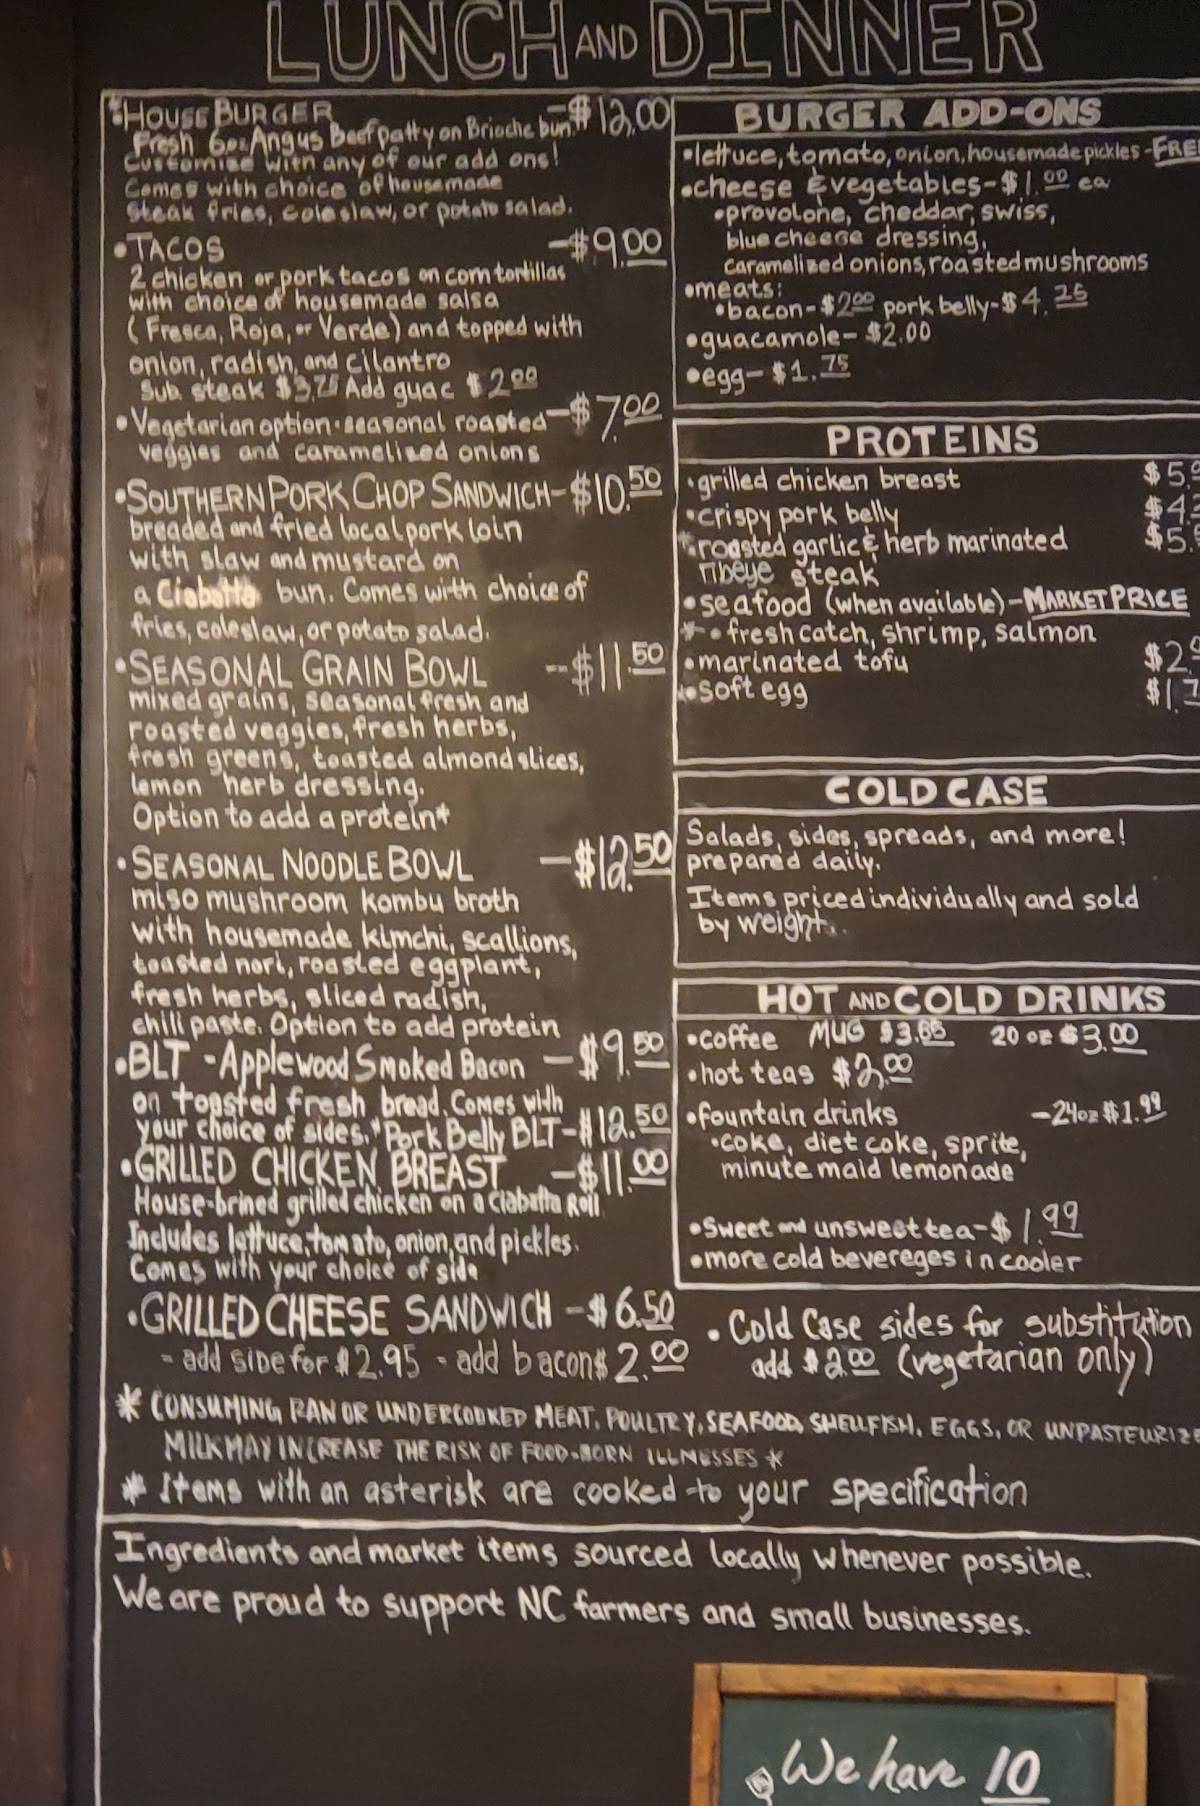 LUNCH AND DINNER
*HOUSE BURGER -$12.00
Fresh 6oz Angus Beef patty on Brioche bun.
Customise with any of our add ons!
Comes with choice of housemade
steak fries, coleslaw, or potato salad.
•TACOS -$9.00
2 chicken or pork tacos on corn tortillas
with choice of housemade salsa
(Fresca, Roja, or Verde) and topped with
onion, radish, and cilantro
Sub. steak $3.75 Add guac $2.00
•Vegetarian option-seasonal roasted -$7.00
veggies and caramelized onions
•SOUTHERN PORK CHOP SANDWICH-$10.50
breaded and fried local pork loin
with slaw and mustard on
a Ciabatta bun. Comes with choice of
fries, coleslaw, or potato salad.
•SEASONAL GRAIN BOWL --$11.50
mixed grains, seasonal fresh and
roasted veggies, fresh herbs,
fresh greens, toasted almond slices,
lemon herb dressing.
Option to add a protein*
•SEASONAL NOODLE BOWL -$12.50
miso mushroom kombu broth
with housemade kimchi, scallions,
toasted nori, roasted eggplant,
fresh herbs, sliced radish,
chili paste. Option to add protein
•BLT -Applewood Smoked Bacon -$9.50
on toasted fresh bread. Comes with
your choice of sides. *Pork Belly BLT-$12.50
•GRILLED CHICKEN BREAST -$11.00
House-brined grilled chicken on a Ciabatta Roll
Includes lettuce, tomato, onion, and pickles.
Comes with your choice of side
•GRILLED CHEESE SANDWICH -$6.50
- add side for $2.95 - add bacon $2.00
BURGER ADD-ONS
•lettuce, tomato, onion, housemade pickles-FREE
•cheese & vegetables-$1.00 ea
•provolone, cheddar, swiss,
blue cheese dressing,
caramelized onions, roasted mushrooms
•meats:
•bacon-$2.00 pork belly-$4.25
•guacamole- $2.00
•egg- $1.75
PROTEINS
•grilled chicken breast $5.
•crispy pork belly $4.
*•roasted garlic & herb marinated $5.
ribeye steak
•seafood (when available)-MARKET PRICE
*•fresh catch, shrimp, salmon
•marinated tofu $2.
*•soft egg $1.7
COLD CASE
Salads, sides, spreads, and more!
prepared daily.
Items priced individually and sold
by weight.
HOT AND COLD DRINKS
•coffee MUG $3.65 20 oz $3.00
•hot teas $2.00
•fountain drinks -24oz $1.99
•coke, diet coke, sprite,
minute maid lemonade
•Sweet and unsweet tea-$1.99
•more cold bevereges in cooler
•Cold Case sides for substitution
add $2.00 (vegetarian only)
* CONSUMING RAW OR UNDERCOOKED MEAT, POULTRY, SEAFOOD, SHELLFISH, EGGS, OR UNPASTEURIZE
MILK MAY INCREASE THE RISK OF FOOD-BORN ILLNESSES *
* Items with an asterisk are cooked to your specification
Ingredients and market items sourced locally whenever possible.
We are proud to support NC farmers and small businesses.
We have 10